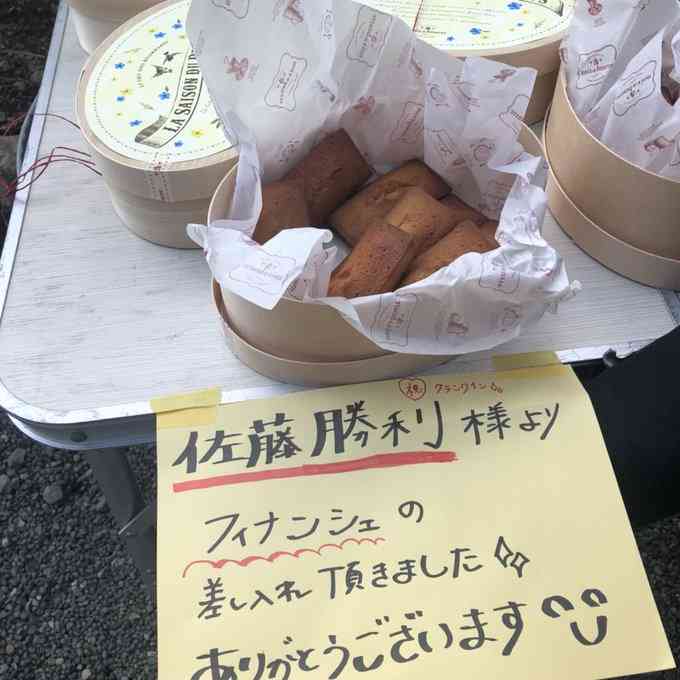 LA SAISON DU
祝 クランクイン
佐藤勝利 様より
フィナンシェの
差し入れ 頂きました
ありがとうございます